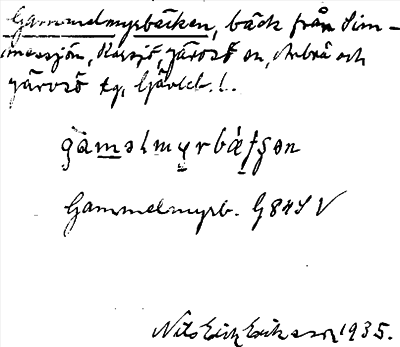 Gammelmyrbäcken, bäck från Sim-
messjön, Karsjö, Järvsö sn, Arbrå och
Järvsö tg, Gävleb. l.
gaməlmyrbækʃən
Gammelmyrb. G 84 S V
Nils Erik Eriksson 1935.